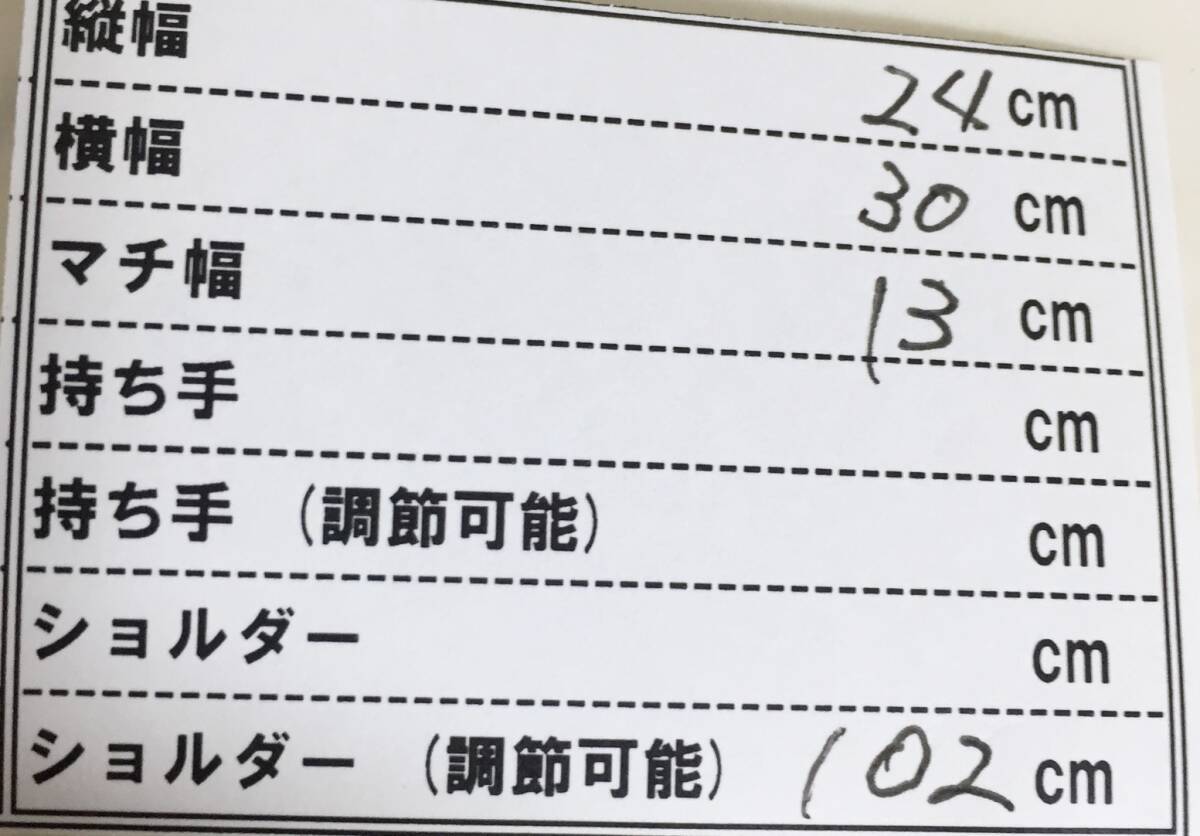 縦幅 24 cm
横幅 30 cm
マチ幅 13 cm
持ち手 cm
持ち手 (調節可能) cm
ショルダー cm
ショルダー (調節可能) 102 cm